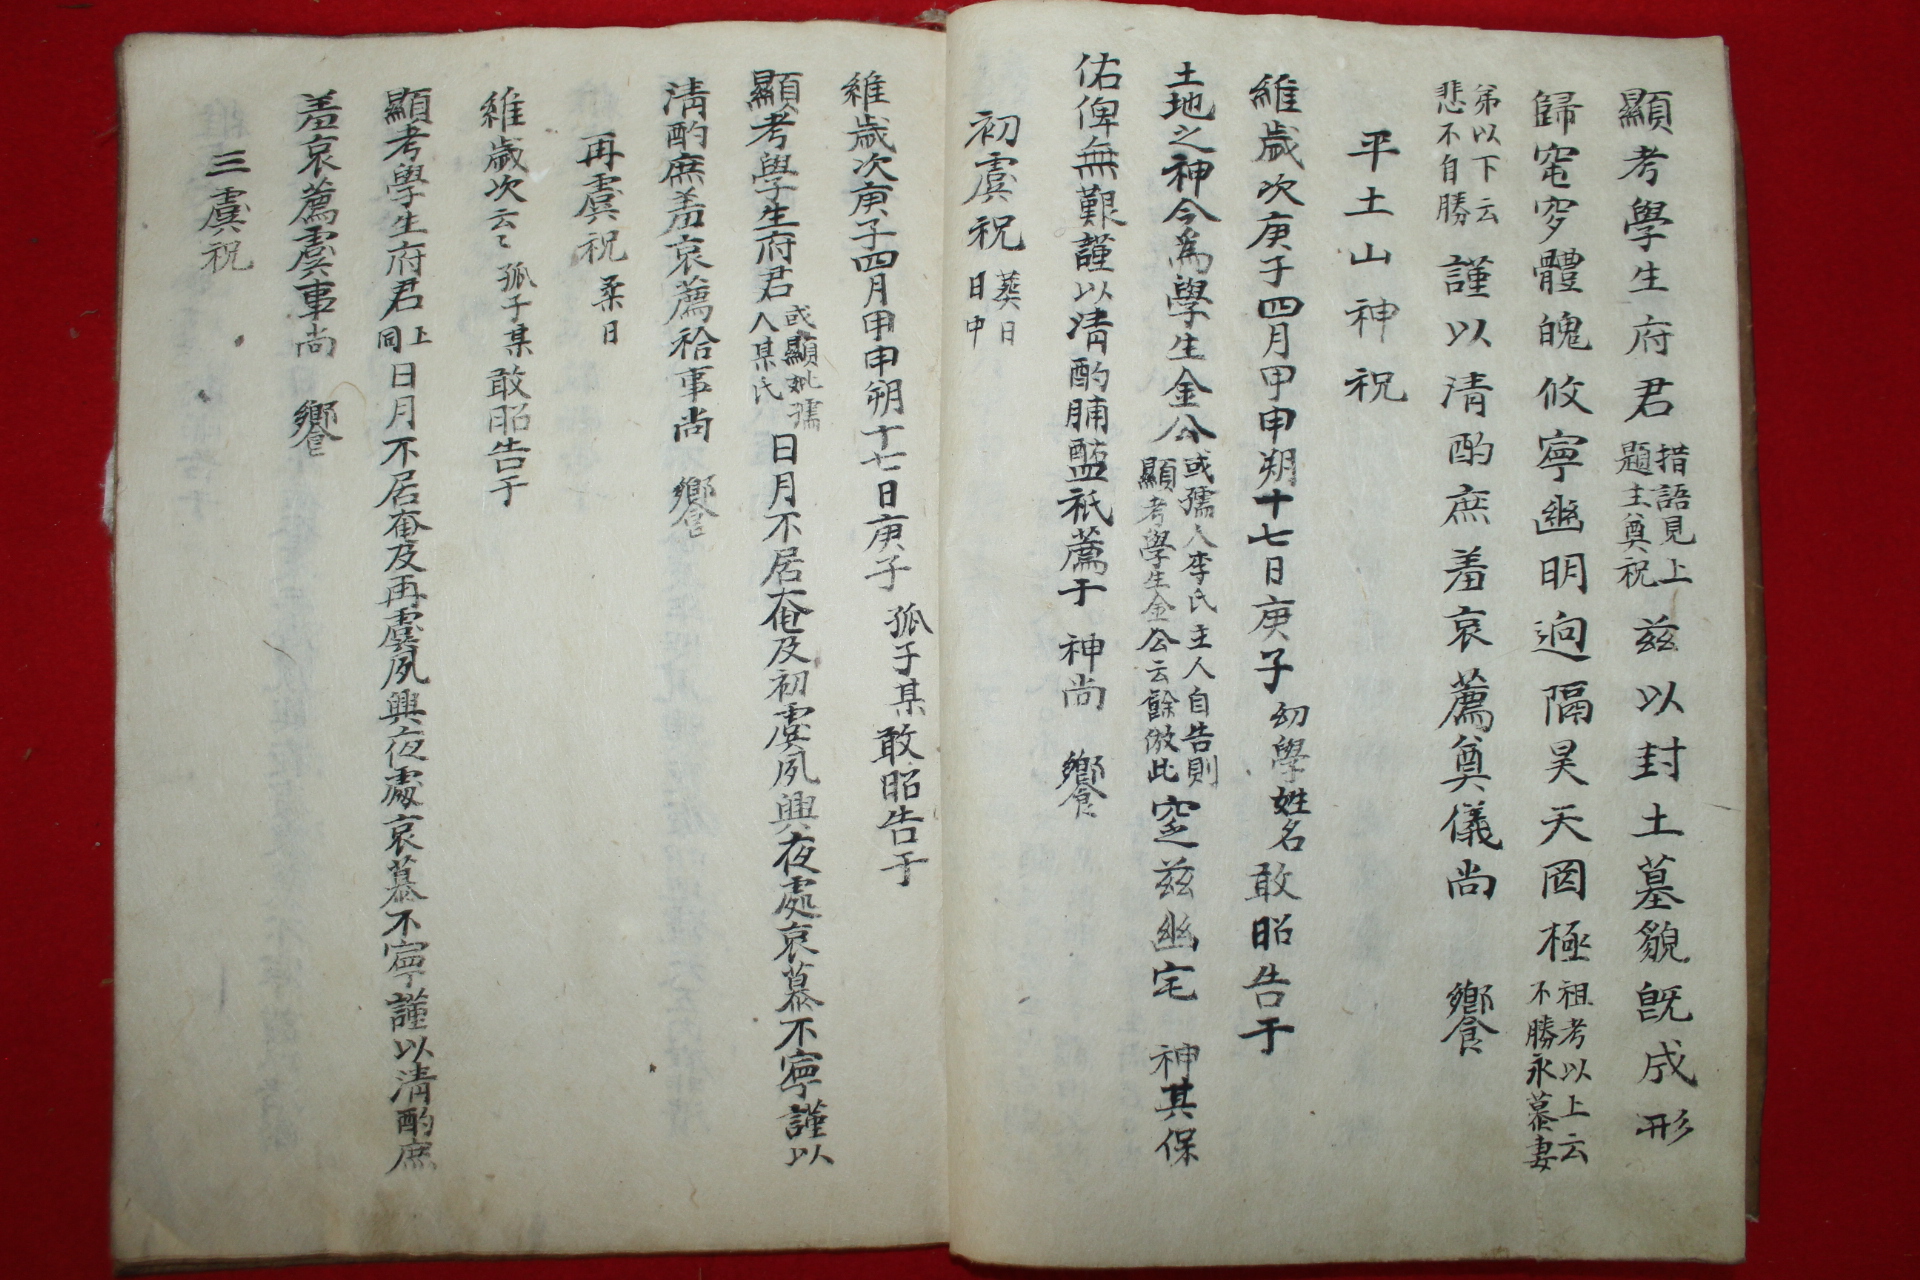 顯考學生府君措語見上題主奠祝玆以封土墓貌旣成形
歸窀穸體魄攸寧幽明逈隔昊天罔極祖考以上云不勝永慕妻
弟以下云悲不自勝謹以清酌庶羞哀薦奠儀尙饗
平土山神祝
維歲次庚子四月甲申朔十七日庚子幼學姓名敢昭告于
土地之神今爲學生金公或孺人李氏主人自告則顯考學生金公云餘倣此窆玆幽宅神其保
佑俾無艱謹以淸酌脯醢祇薦于神尙饗
初虞祝葬日日中
維歲次庚子四月甲申朔十七日庚子孤子某敢昭告于
顯考學生府君或顯妣孺人某氏日月不居奄及初虞夙興夜處哀慕不寧謹以
淸酌庶羞哀薦祫事尙饗
再虞祝柔日
維歲次云〻孤子某敢昭告于
顯考學生府君上同日月不居奄及再虞夙興夜處哀慕不寧謹以淸酌庶
羞哀薦虞事尙饗
三虞祝